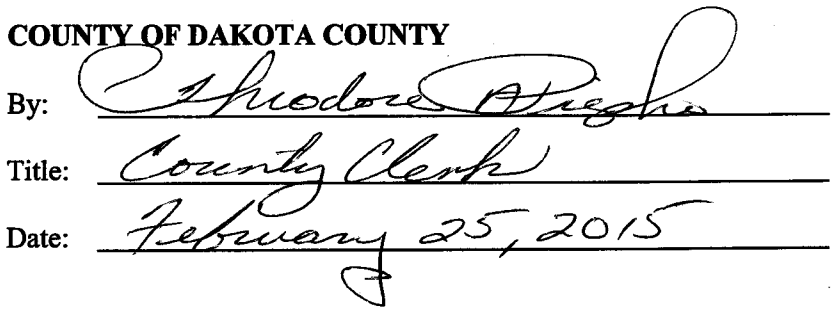 COUNTY OF DAKOTA COUNTY
By: Theodore A Piepho
Title: County Clerk
Date: February 25, 2015